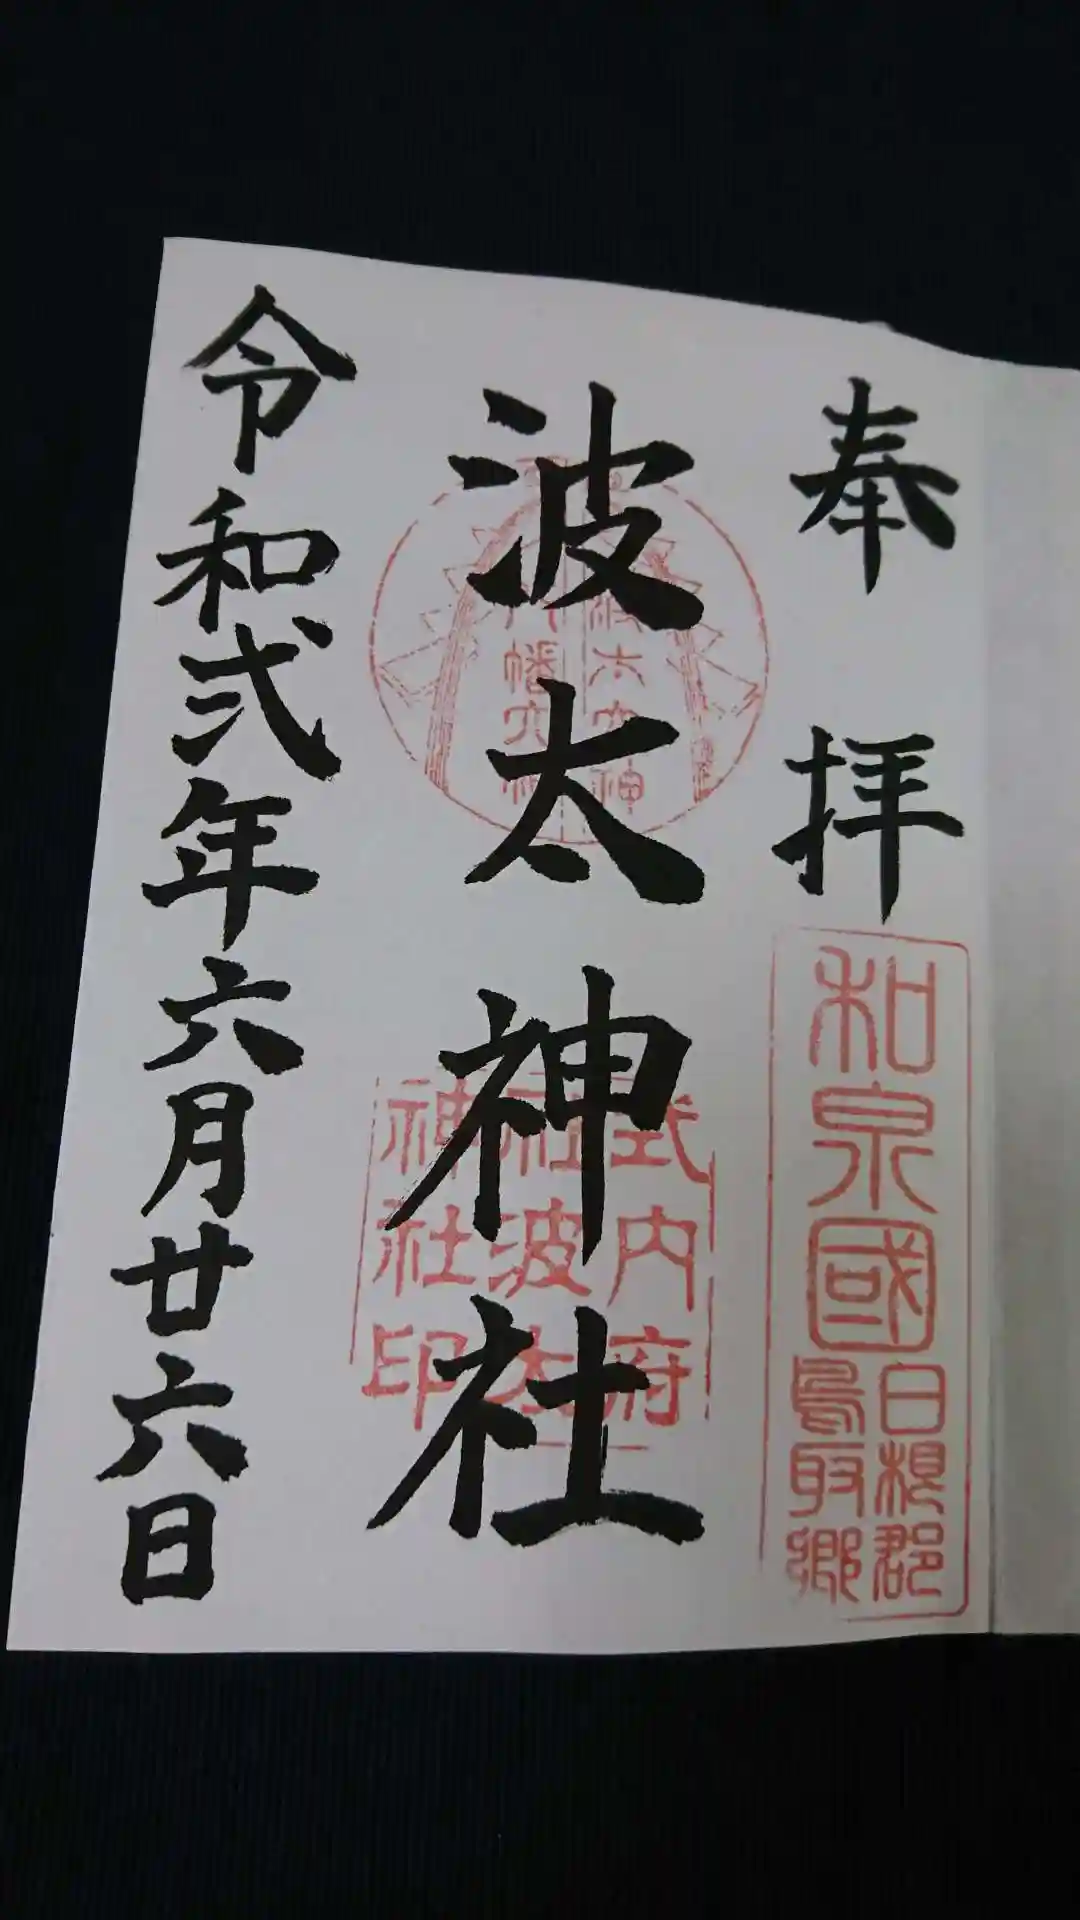 奉拝
和泉國
日根郡
鳥取郷
波太神社
波太大神
八幡大神
式内府
社波太
神社印
令和弐年六月廿六日